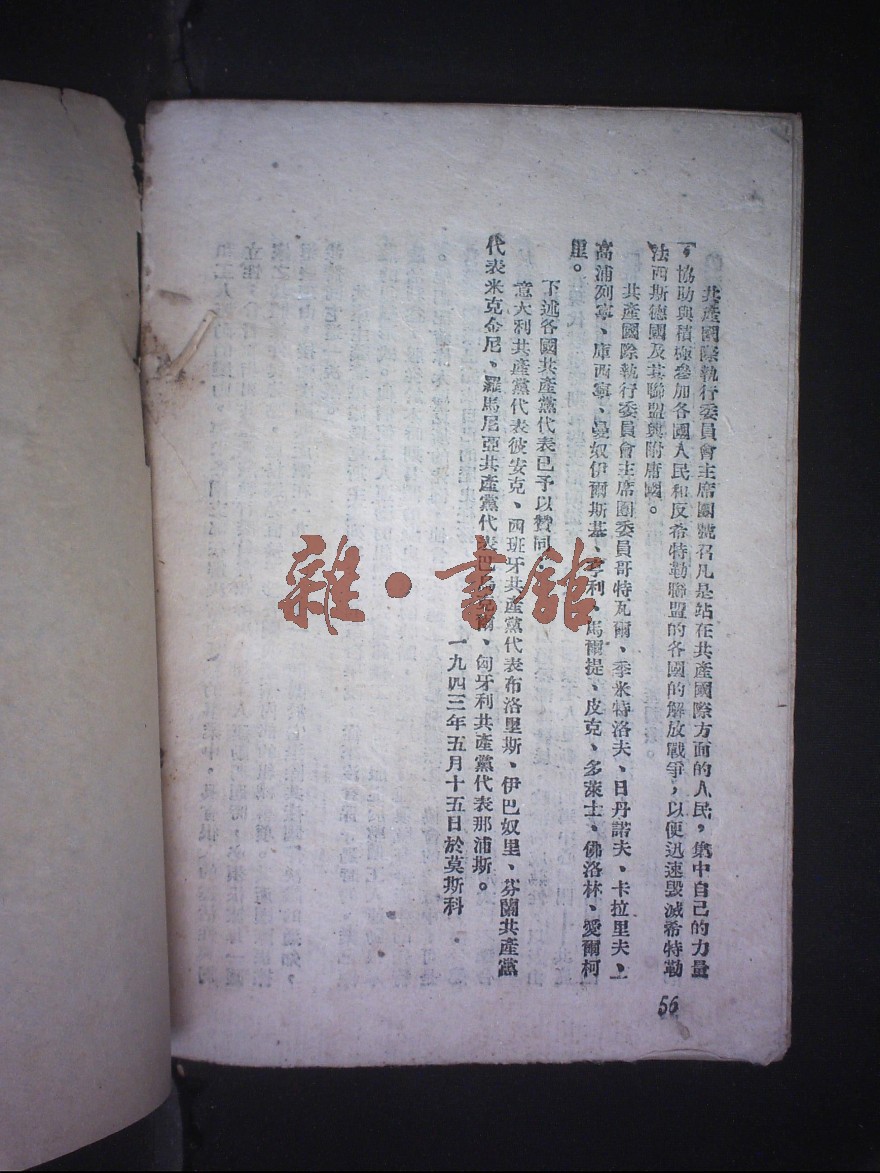 共產國際執行委員會主席團號召凡是站在共產國際方面的人民，集中自己的力量
，協助與積極參加各國人民和反希特勒聯盟的各國的解放戰爭，以便迅速毀滅希特勒
法西斯德國及其聯盟與附庸國。
共產國際執行委員會主席團委員哥特瓦爾、季米特洛夫、日丹諾夫、卡拉里夫、
高浦列寧、庫西寧、曼奴伊爾斯基、馬爾提、皮克、多萊士、佛洛林、愛爾柯
里。
下述各國共產黨代表已予以贊同：
意大利共產黨代表彼安克、西班牙共產黨代表布洛里斯、伊巴奴里、芬蘭共產黨
代表米克金尼、羅馬尼亞共產黨代表巴、匈牙利共產黨代表那浦斯。
一九四三年五月十五日於莫斯科
56
雜·書館